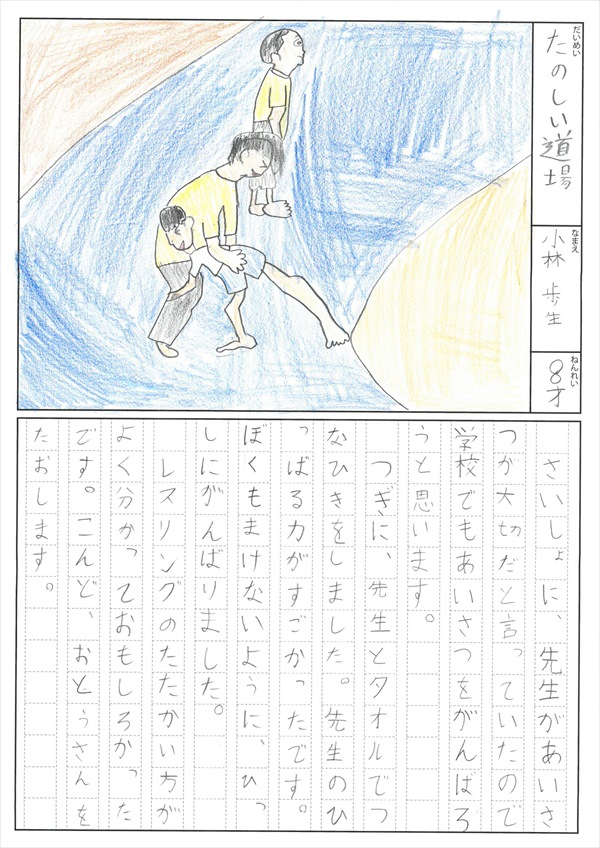 だいめい
たのしい道場
なまえ
小林 歩生
ねんれい
8才
さいしょに、先生があいさ
つが大切だと言っていたので
学校でもあいさつをがんばろ
うと思います。
つぎに、先生とタオルでつ
なひきをしました。先生のひ
っぱる力がすごかったです。
ぼくもまけないように、ひっ
しにがんばりました。
レスリングのたたかい方が
よく分かっておもしろかった
です。こんど、おとうさんを
たおします。